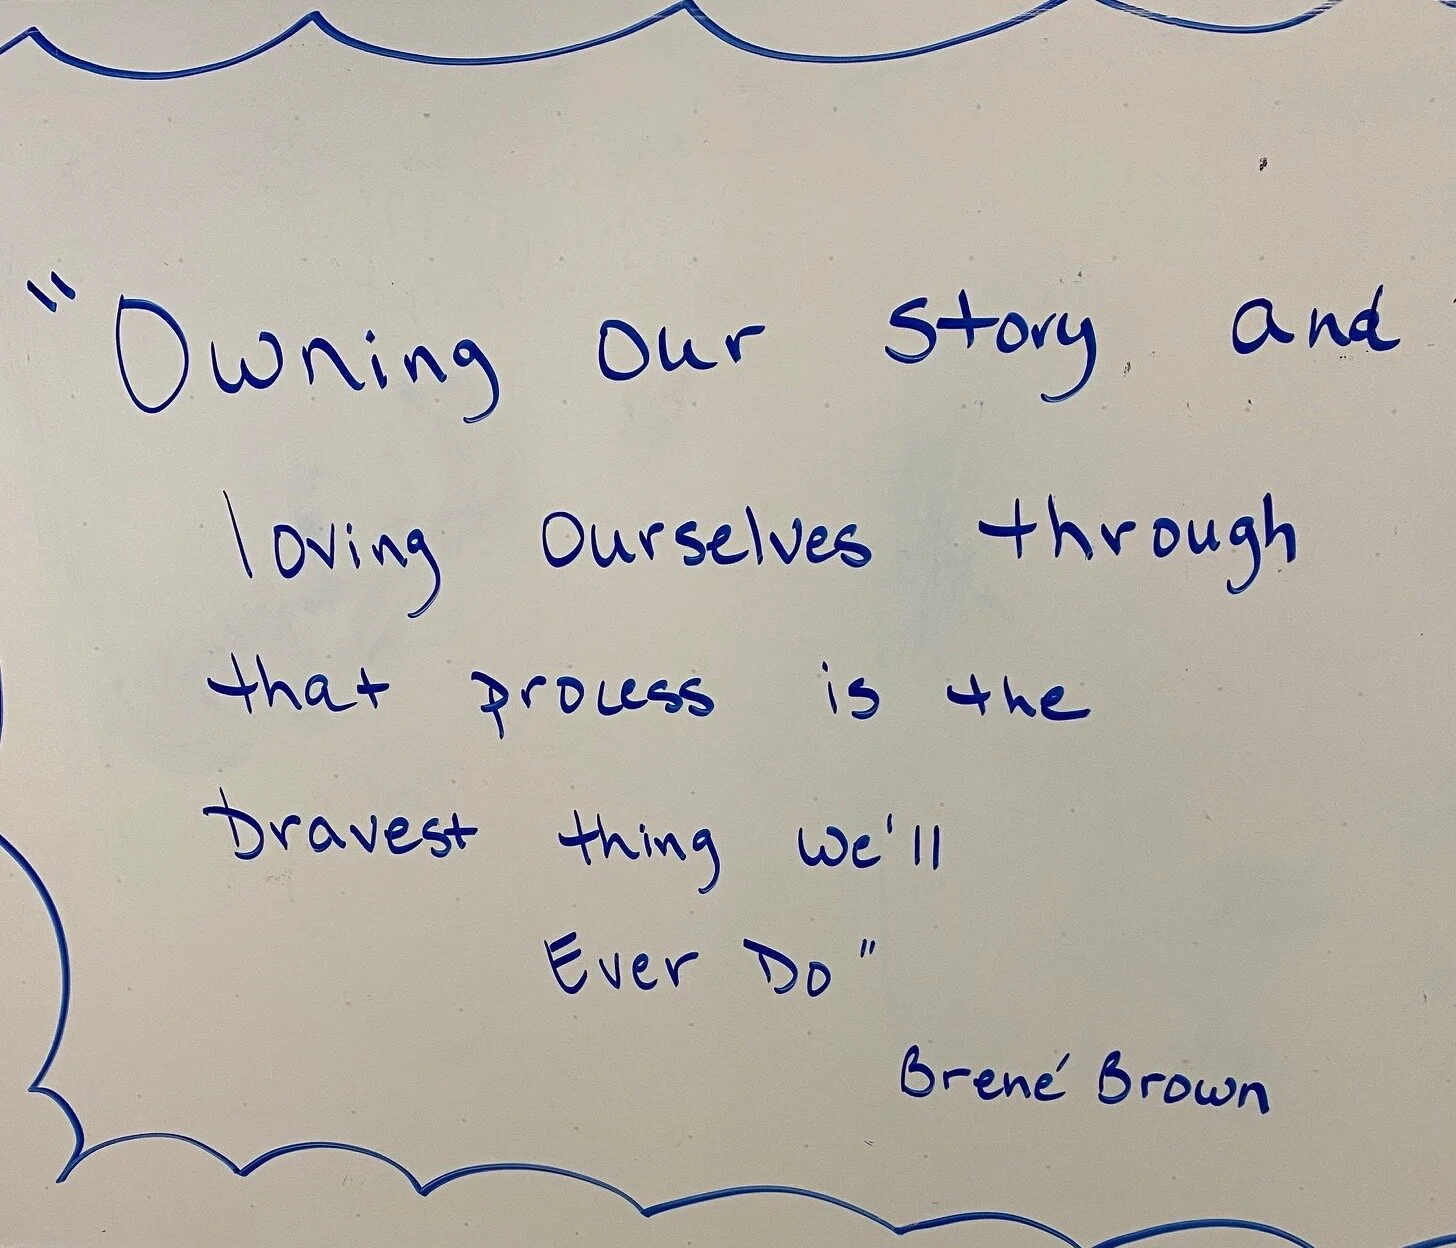 "Owning our story and
loving ourselves through
that process is the
bravest thing we'll
Ever Do"
Brené Brown